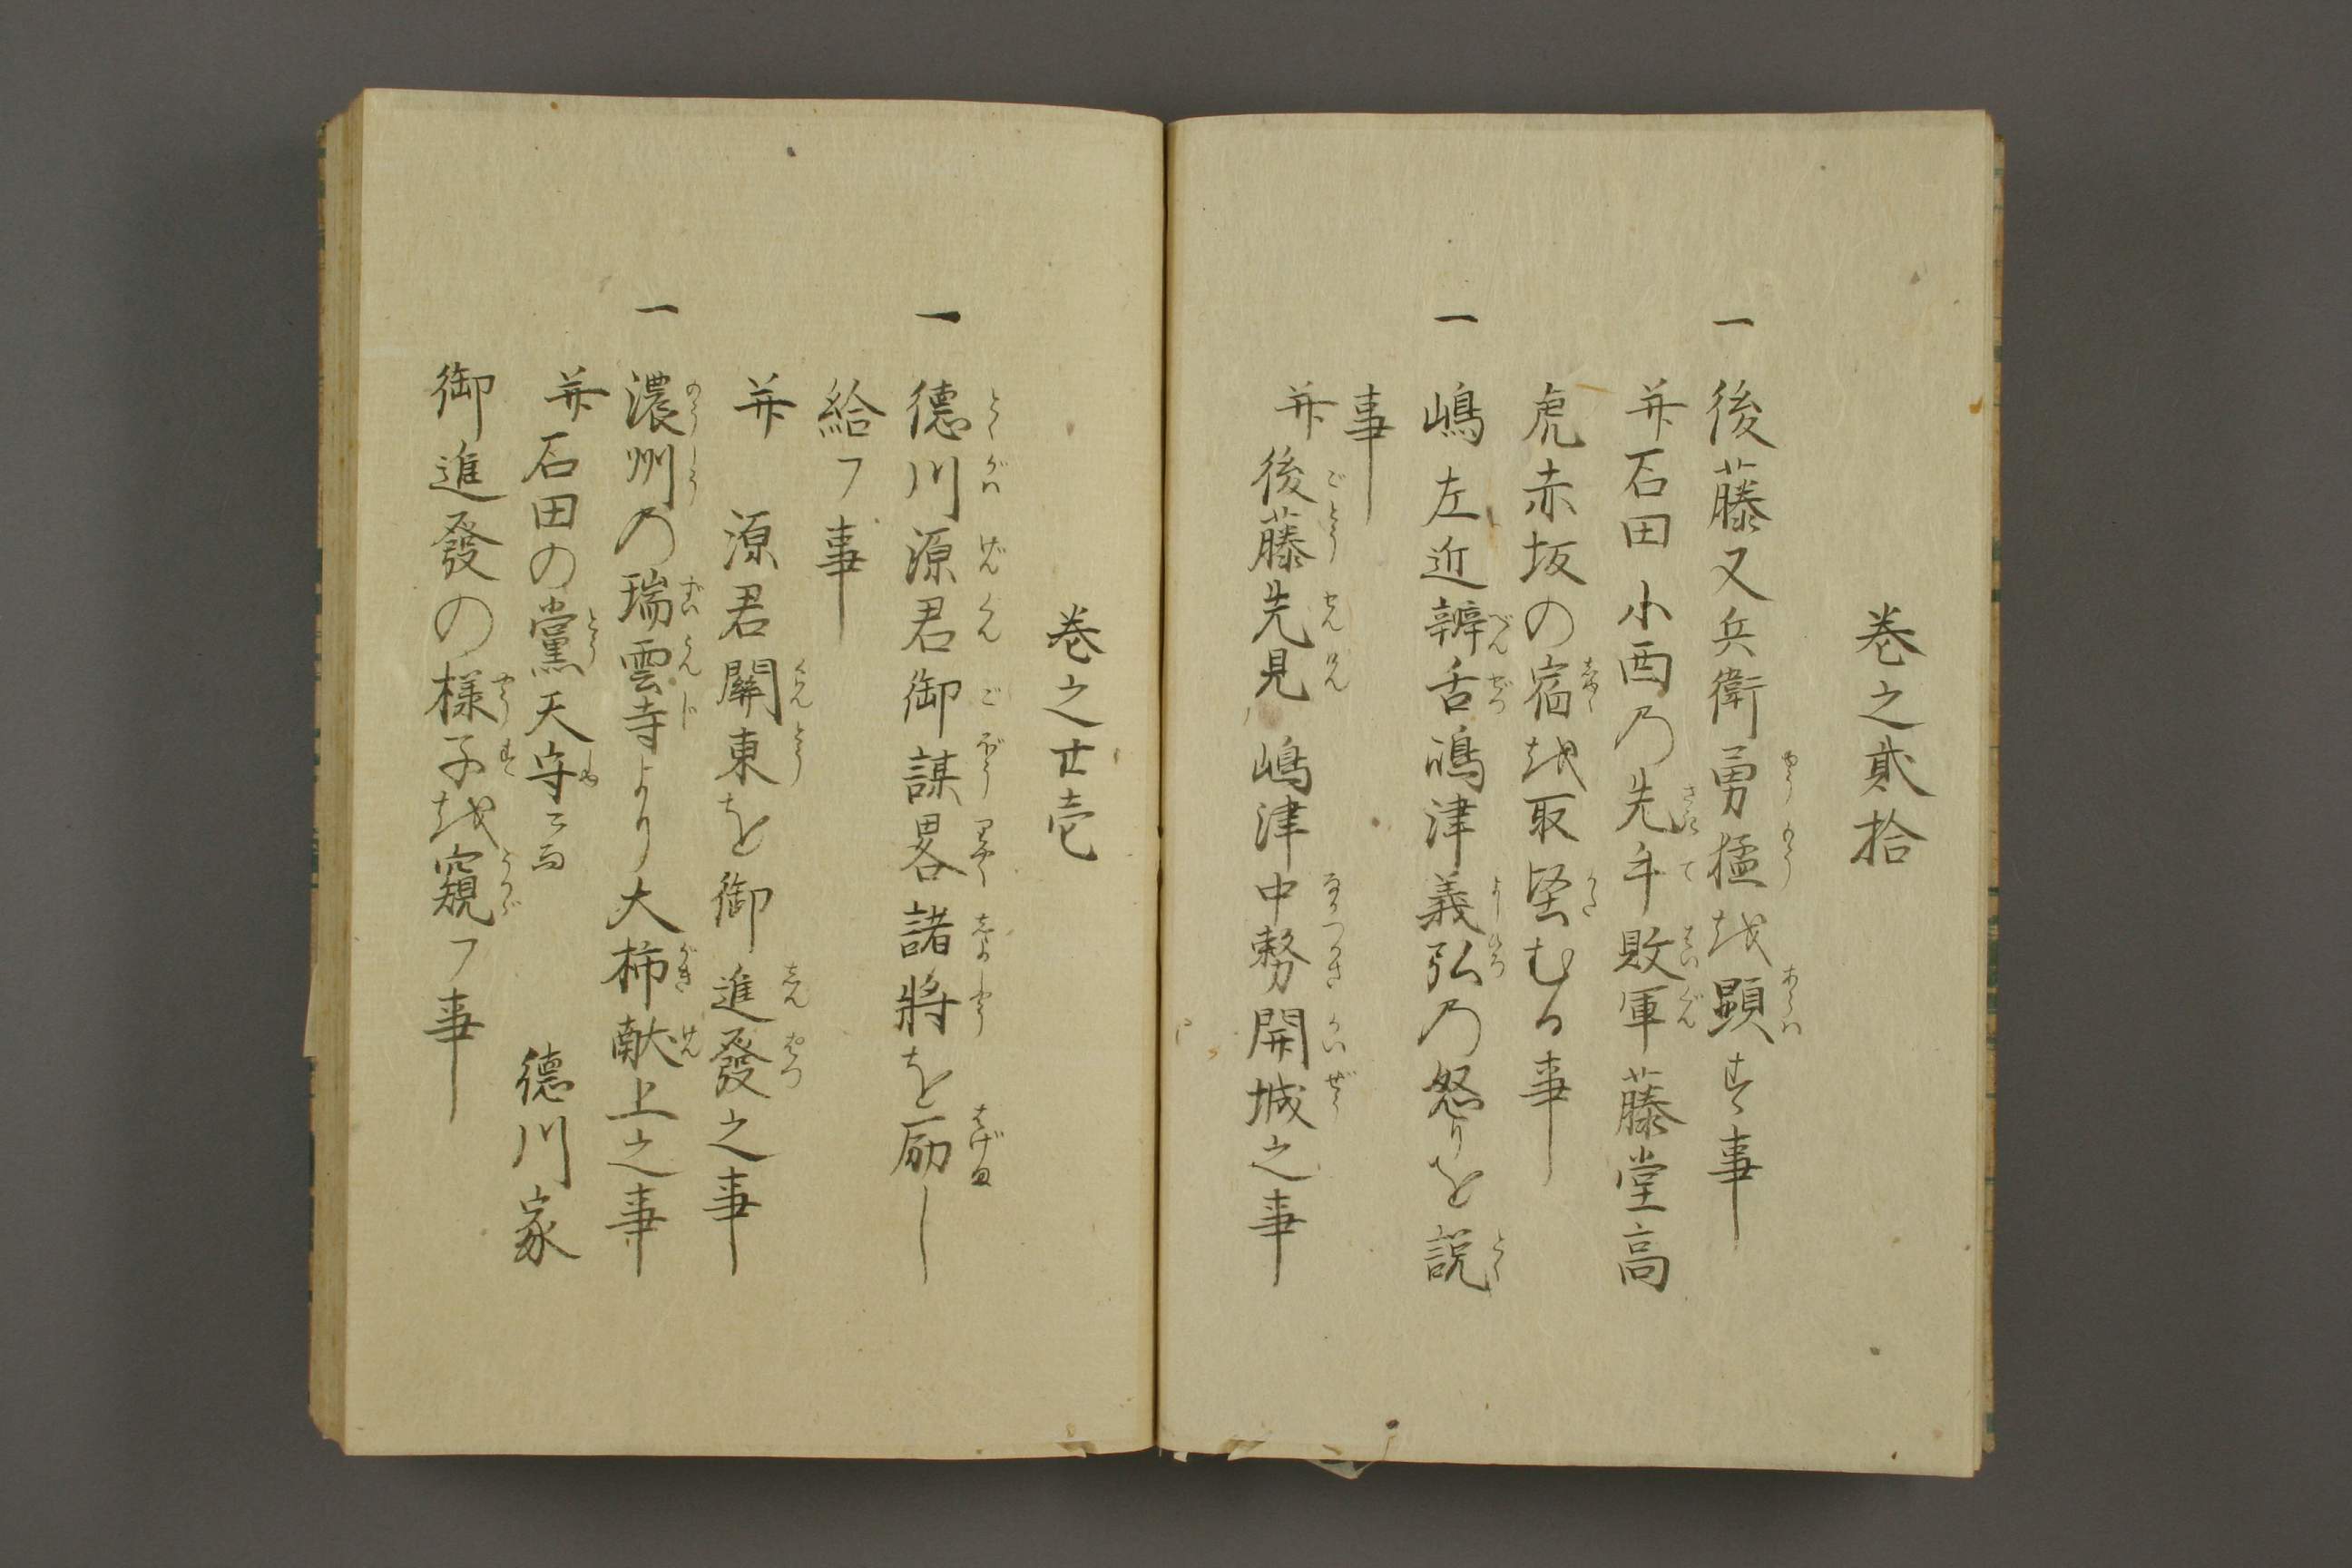 巻之貳拾
一 後藤又兵衛勇猛越顕す事
并石田小西乃先手敗軍藤堂高
虎赤坂の宿越取堅むる事
一 嶋左近辨舌嶋津義弘乃怒りを説
事
并後藤先見嶋津中務開城之事
巻之廿壱
一 德川源君御謀畧諸將を励し
給フ事
并 源君關東を御進發之事
一 濃州乃瑞雲寺より大柿献上之事
并石田の黨天守ニ而 德川家
御進發の様子越窺フ事